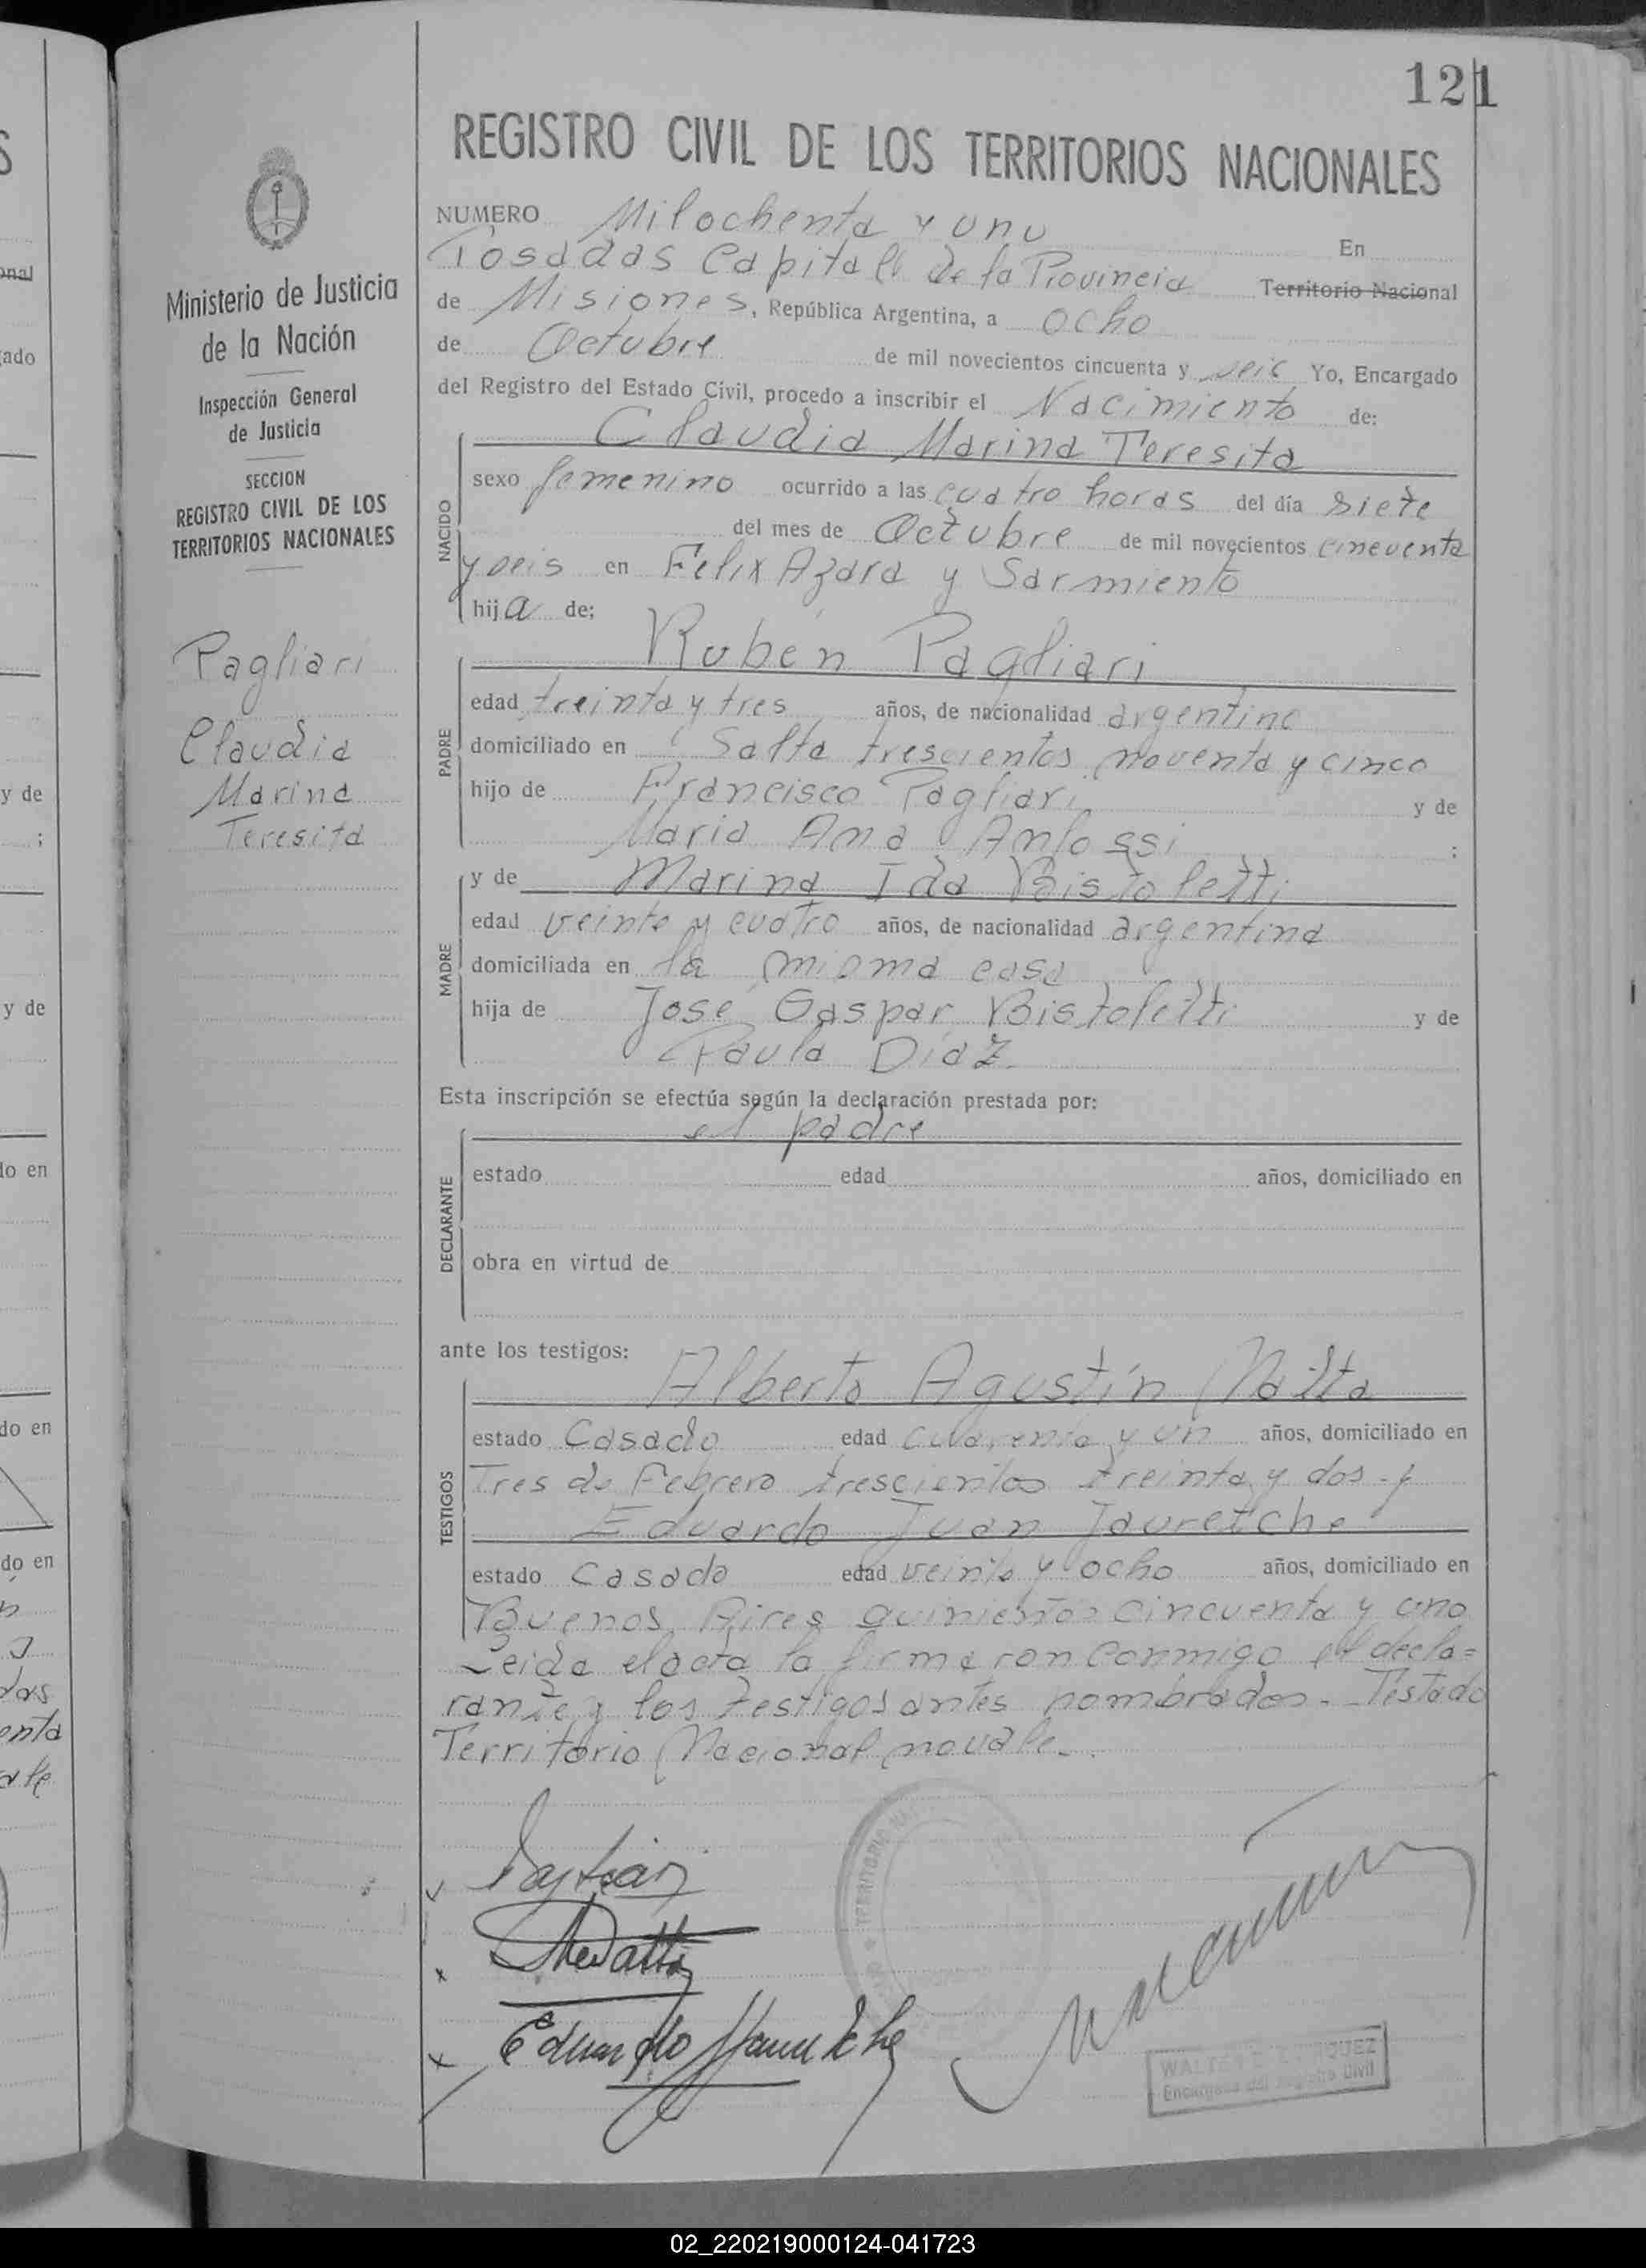 121
REGISTRO CIVIL DE LOS TERRITORIOS NACIONALES
Ministerio de Justicia
de la Nación
Inspección General
de Justicia
SECCION
REGISTRO CIVIL DE LOS
TERRITORIOS NACIONALES
Pagliari
Claudia
Marina
Teresita
NUMERO Milochenta y uno En
Posadas Capital de la Provincia Territorio Nacional
de Misiones, República Argentina, a ocho
de Octubre de mil novecientos cincuenta y seis Yo, Encargado
del Registro del Estado Civil, procedo a inscribir el Nacimiento de:
NACIDO
Claudia Marina Teresita
sexo femenino ocurrido a las cuatro horas del día siete
del mes de Octubre de mil novecientos cincuenta
y seis en Felix Azara y Sarmiento
hija de;
PADRE
Rubén Pagliari
edad treinta y tres años, de nacionalidad argentino
domiciliado en Salta trescientos noventa y cinco
hijo de Francisco Pagliari y de
Maria Ana Anfossi :
MADRE
y de Marina Ida Bistoletti
edad veinte y cuatro años, de nacionalidad argentina
domiciliada en la misma casa
hija de José Gaspar Bistoletti y de
Paula Díaz
Esta inscripción se efectúa según la declaración prestada por:
DECLARANTE
el padre
estado edad años, domiciliado en
obra en virtud de
ante los testigos:
TESTIGOS
Alberto Agustín
estado Casado edad cuarenta y un años, domiciliado en
Tres de Febrero trescientos treinta y dos y
Eduardo Juan Jauretche
estado Casado edad veinte y ocho años, domiciliado en
Buenos Aires quinientos cincuenta y uno
Leida el acta la firmaron conmigo el decla=
rante y los testigos antes nombrados. Testado
Territorio Nacional no vale.
Eduardo Jauretche
Encargado del Registro Civil
02_220219000124-041723